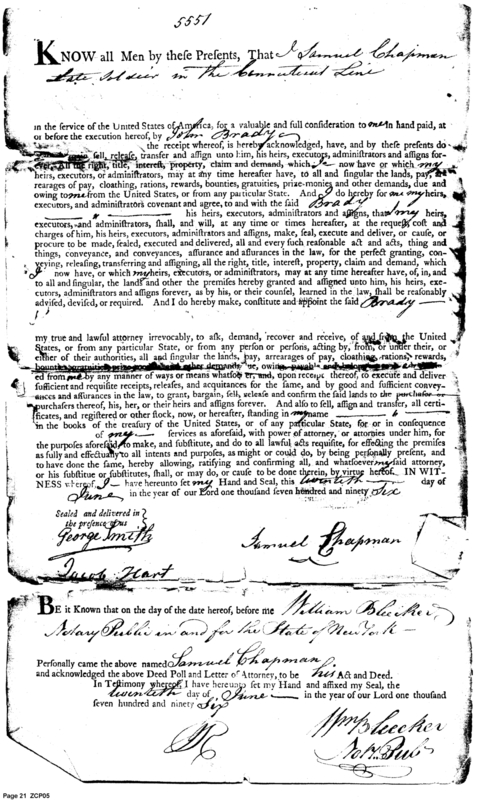 5551
KNOW all Men by these Presents, That I Samuel Chapman
late Soldier in the Connecticut Line
in the service of the United States of America, for a valuable and full consideration to me in hand paid, at
or before the execution hereof, by John Brady
the receipt whereof, is hereby acknowledged, have, and by these presents do
sell, release, transfer and assign unto him, his heirs, executors, administrators and assigns for-
ever. All the right, title, interest, property, claim and demand, which I now have or which my
heirs, executors, or administrators, may at any time hereafter have, to all and singular the lands, pay, ar-
rearages of pay, cloathing, rations, rewards, bounties, gratuities, prize-monies and other demands, due and
owing to me from the United States, or from any particular State. And I do hereby for me my heirs,
executors, and administrators covenant and agree, to and with the said Brady
his heirs, executors, administrators and assigns, that my heirs,
executors, and administrators, shall, and will, at any time or times hereafter, at the request, cost and
charges of him, his heirs, executors, administrators and assigns, make, seal, execute and deliver, or cause, or
procure to be made, sealed, executed and delivered, all and every such reasonable act and acts, thing and
things, conveyance, and conveyances, assurance and assurances in the law, for the perfect granting, con-
veying, releasing, transferring and assigning, all the right, title, interest, property, claim and demand, which
I now have, or which my heirs, executors, or administrators, may at any time hereafter have, of, in, and
to all and singular, the lands and other the premises hereby granted and assigned unto him, his heirs, exe-
cutors, administrators and assigns forever, as by his, or their counsel, learned in the law, shall be reasonably
advised, devised, or required. And I do hereby make, constitute and appoint the said Brady
my true and lawful attorney irrevocably, to ask, demand, recover and receive, of and from the United
States, or from any particular State, or from any person or persons, acting by, from, or under their, or
either of their authorities, all and singular the lands, pay, arrearages of pay, cloathing, rations, rewards,
bounties, gratuities, prize-monies and other demands, due, owing
ed from me by any manner of ways or means whatsoever, and, upon receipt thereof, to execute and deliver
sufficient and requisite receipts, releases, and acquitances for the same, and by good and sufficient convey-
ances and assurances in the law, to grant, bargain, sell, release and confirm the said lands to the purchaser or
purchasers thereof, his, her, or their heirs and assigns forever. And also to sell, assign and transfer, all certi-
ficates, and registered or other stock, now, or hereafter, standing in my name
in the books of the treasury of the United States, or of any particular State, for or in consequence
of my services as aforesaid, with power of attorney, or attornies under him, for
the purposes aforesaid to make, and substitute, and do to all lawful acts requisite, for effecting the premises
as fully and effectually to all intents and purposes, as might or could do, by being personally present, and
to have done the same, hereby allowing, ratifying and confirming all, and whatsoever my said attorney,
or his substitue or substitutes, shall, or may do, or cause to be done therein, by virtue hereof. IN WIT-
NESS whereof, I have hereunto set my Hand and Seal, this twentieth day of
June in the year of our Lord one thousand seven hundred and ninety Six
Sealed and delivered in
the presence of us
George Smith
Samuel Chapman
Jacob Hart
BE it Known that on the day of the date hereof, before me William Bleecker
Notary Public in and for the State of New York
Personally came the above named Samuel Chapman
and acknowledged the above Deed Poll and Letter of Attorney, to be his Act and Deed.
In Testimony whereof, I have hereunto set my Hand and affixed my Seal, the
twentieth day of June in the year of our Lord one thousand
seven hundred and ninety Six
Wm Bleecker
Not. Pub
Page 21 ZCP05